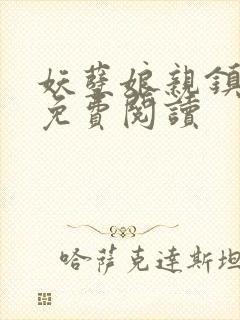 妖孽娘親鎮
免費閱讀
哈薩克達斯坦